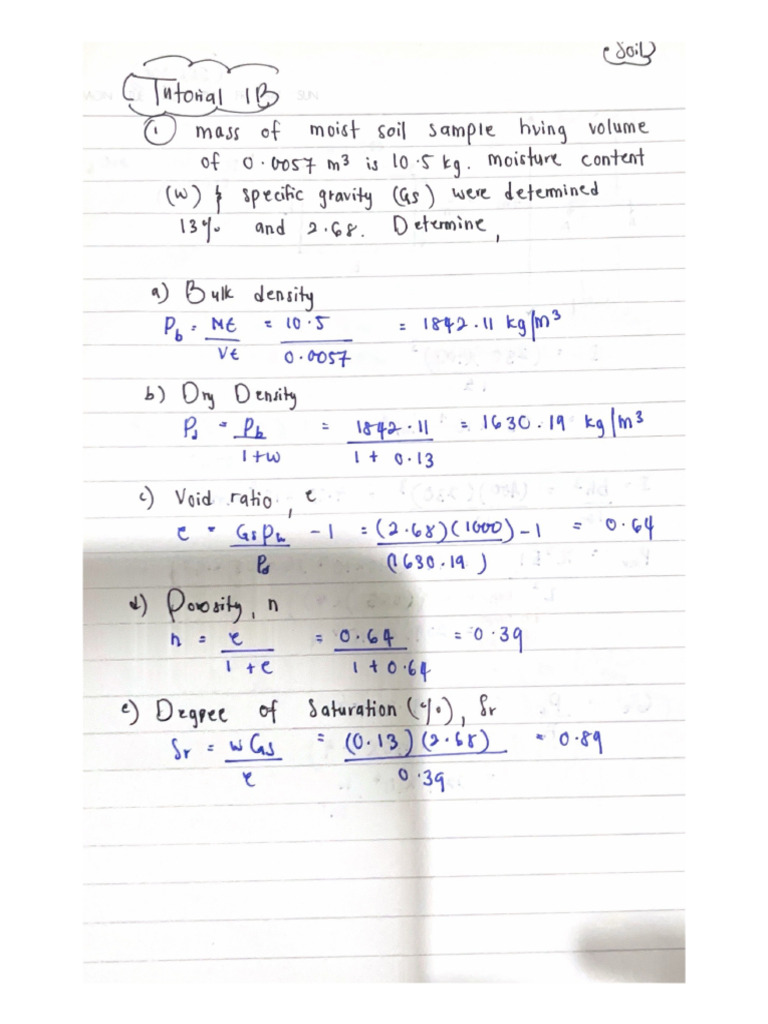 Soil
Tutorial 1B
① mass of moist soil sample hving volume
of 0.0057 m³ is 10.5 kg. moisture content
(w) & specific gravity (Gs) were determined
13% and 2.68. Determine,
a) Bulk density
ρb = Mt/Vt = 10.5/0.0057 = 1842.11 kg/m³
b) Dry Density
ρd = ρb/1+w = 1842.11/1 + 0.13 = 1630.19 kg/m³
c) Void ratio, e
e = Gsρw/ρd - 1 = (2.68)(1000)/(1630.19) - 1 = 0.64
d) Porosity, n
n = e/1+e = 0.64/1+0.64 = 0.39
e) Degree of Saturation (%), Sr
Sr = wGs/e = (0.13)(2.68)/0.39 = 0.89